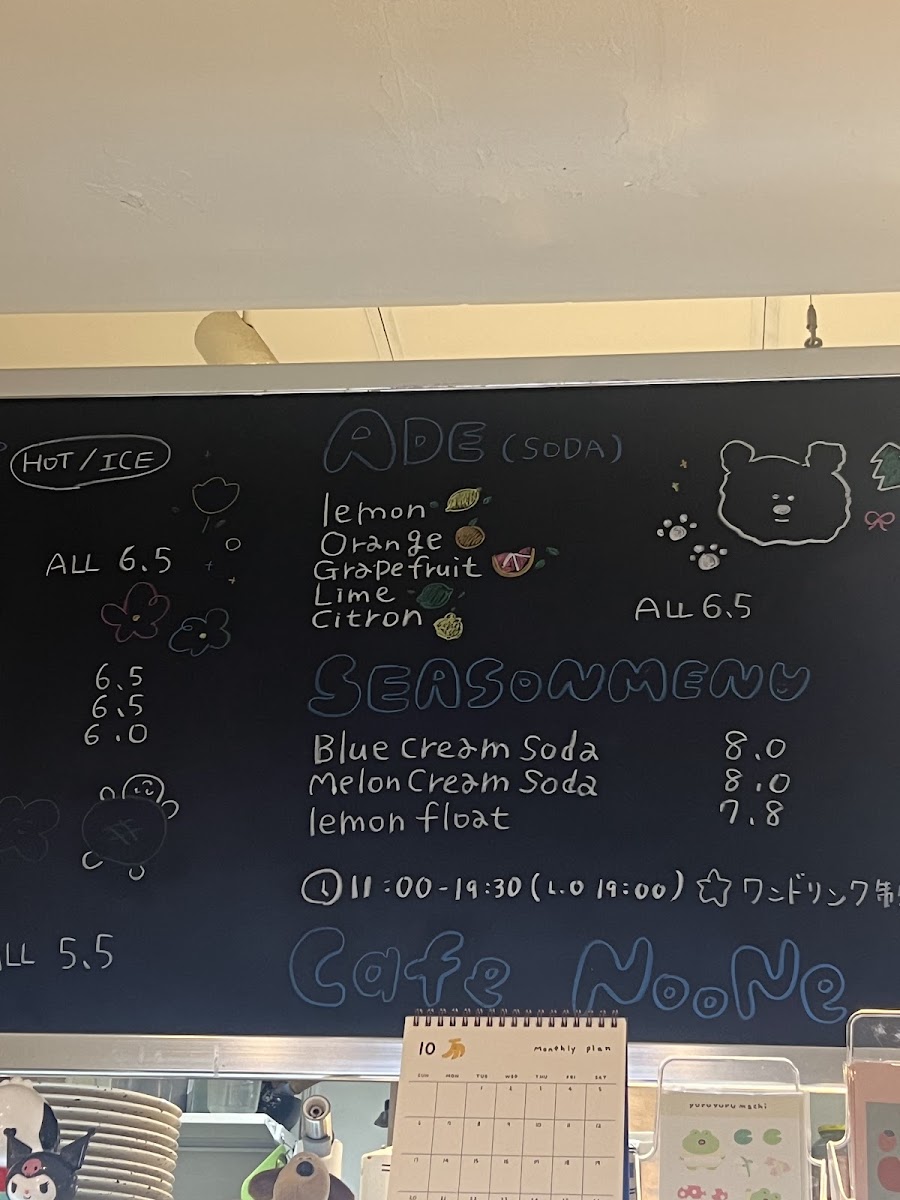 HOT / ICE
ALL 6.5
6.5
6.5
6.0
ALL 5.5
ADE (SODA)
lemon
Orange
Grapefruit
Lime
Citron
ALL 6.5
SEASON MENU
Blue cream Soda 8.0
Melon Cream Soda 8.0
lemon float 7.8
11:00-19:30 (L.O 19:00) ☆ ワンドリンク制
Cafe NooNe
10 Monthly plan
SUN MON TUE WED THU FRI SAT
purupuru machi